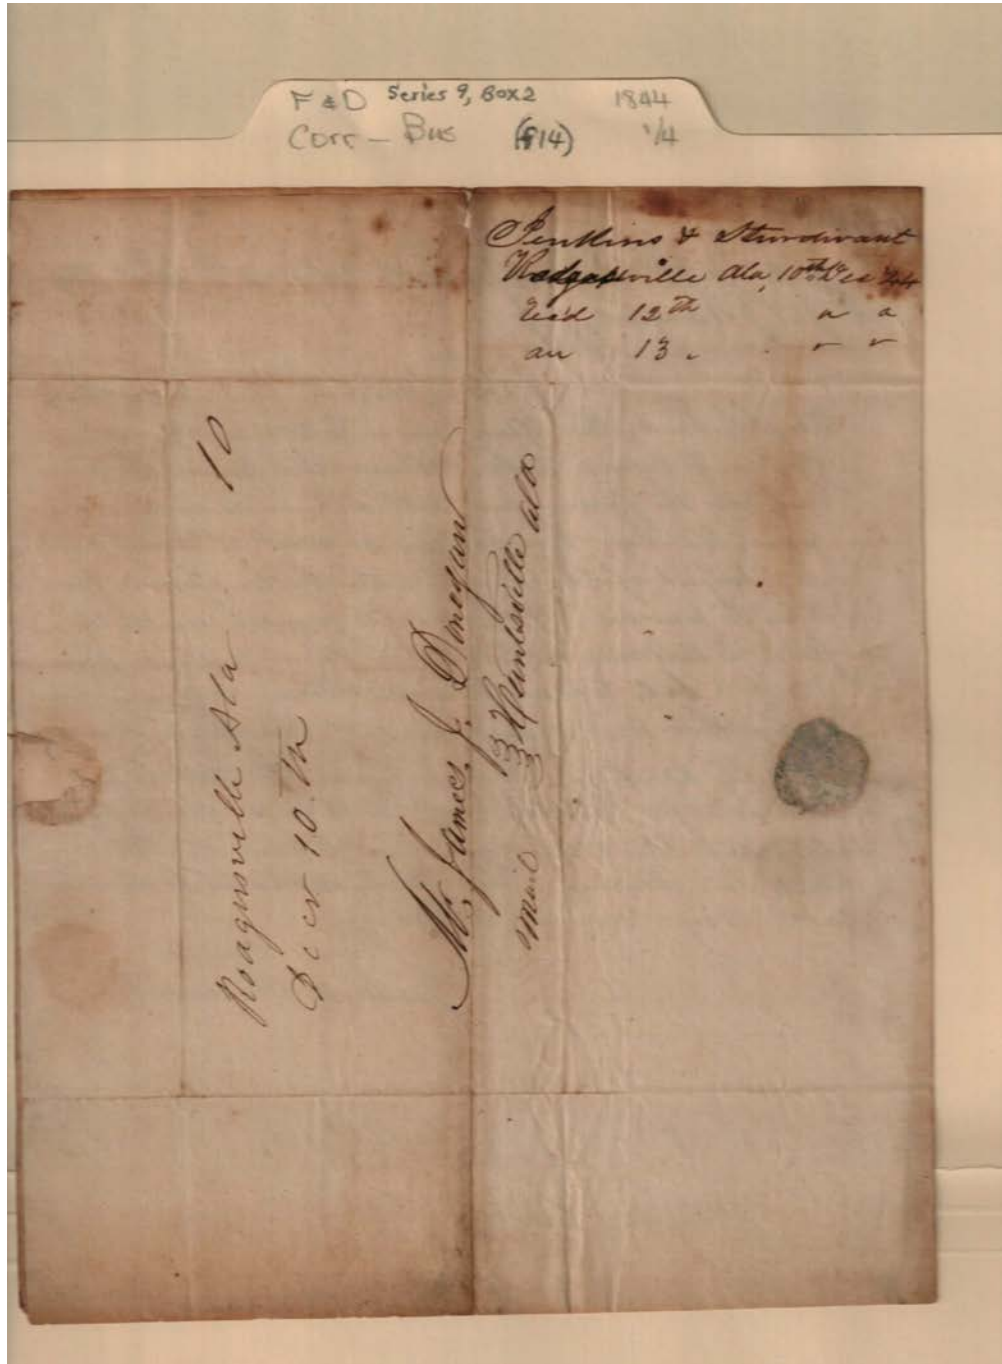 F & D Series 9, Box 2 1844
Corr - Bus (f14) 1/4
Jenkins & Sturdivant
ville Ala, 10th Dec 44
Rec'd 12th " "
an 13 " "
Roagersville Ala 10
Decr 10th
Mr. James J. Donegan
Huntsville Ala
Mail